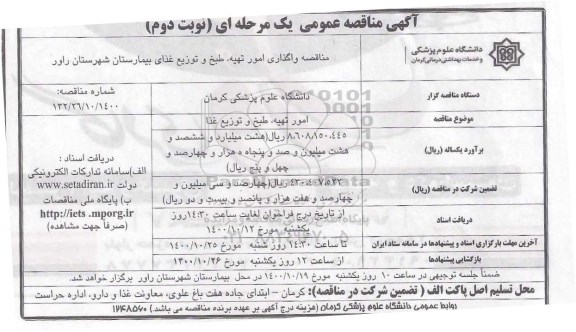 آگهی مناقصه عمومی یک مرحله ای (نوبت دوم)
دانشگاه علوم پزشکی
و خدمات بهداشتی درمانی کرمان
مناقصه واگذاری امور تهیه، طبخ و توزیع غذای بیمارستان شهرستان راور
دستگاه مناقصه گزار
دانشگاه علوم پزشکی کرمان
شماره مناقصه:
۱۳۲/۲۶/۱۰/۱۴۰۰
موضوع مناقصه
امور تهیه، طبخ و توزیع غذا
برآورد یکساله (ریال)
۸،۶۰۸،۱۵۰،۴۴۵ ریال(هشت میلیارد و ششصد و
هشت میلیون و صد و پنجاه ه هزار و چهارصد و
چهل و پنج ریال)
دریافت اسناد :
الف)سامانه تدارکات الکترونیکی
دولت www.setadiran.ir
ب) پایگاه ملی مناقصات
http://iets .mporg.ir
(صرفاً جهت مشاهده)
تضمین شرکت در مناقصه (ریال)
ریال(چهارصد و سی میلیون و
چهارصد و هفت هزار و پانصد و بیست و دو ریال)
دریافت اسناد
از تاریخ درج فراخوان لغایت ساعت ۱۴:۳۰ روز
یکشنبه مورخ ۱۴۰۰/۱۰/۱۲
آخرین مهلت بارگزاری اسناد و پیشنهادها در سامانه ستاد ایران
تا ساعت ۱۴:۳۰ روز شنبه مورخ ۱۴۰۰/۱۰/۲۵
بازگشایی پیشنهادها
از ساعت ۱۲ روز یکشنبه مورخ ۱۴۰۰/۱۰/۲۶
ضمناً جلسه توجیهی در ساعت ۱۰ روز یکشنبه مورخ ۱۴۰۰/۱۰/۱۹ در محل بیمارستان شهرستان راور برگزار خواهد شد.
محل تسلیم اصل پاکت الف ( تضمین شرکت در مناقصه): کرمان – ابتدای جاده هفت باغ علوی، معاونت غذا و دارو، اداره حراست
روابط عمومی دانشگاه علوم پزشکی کرمان (هزینه درج آگهی بر عهده برنده مناقصه می باشد.) ۱۲۴۸۵۷۰